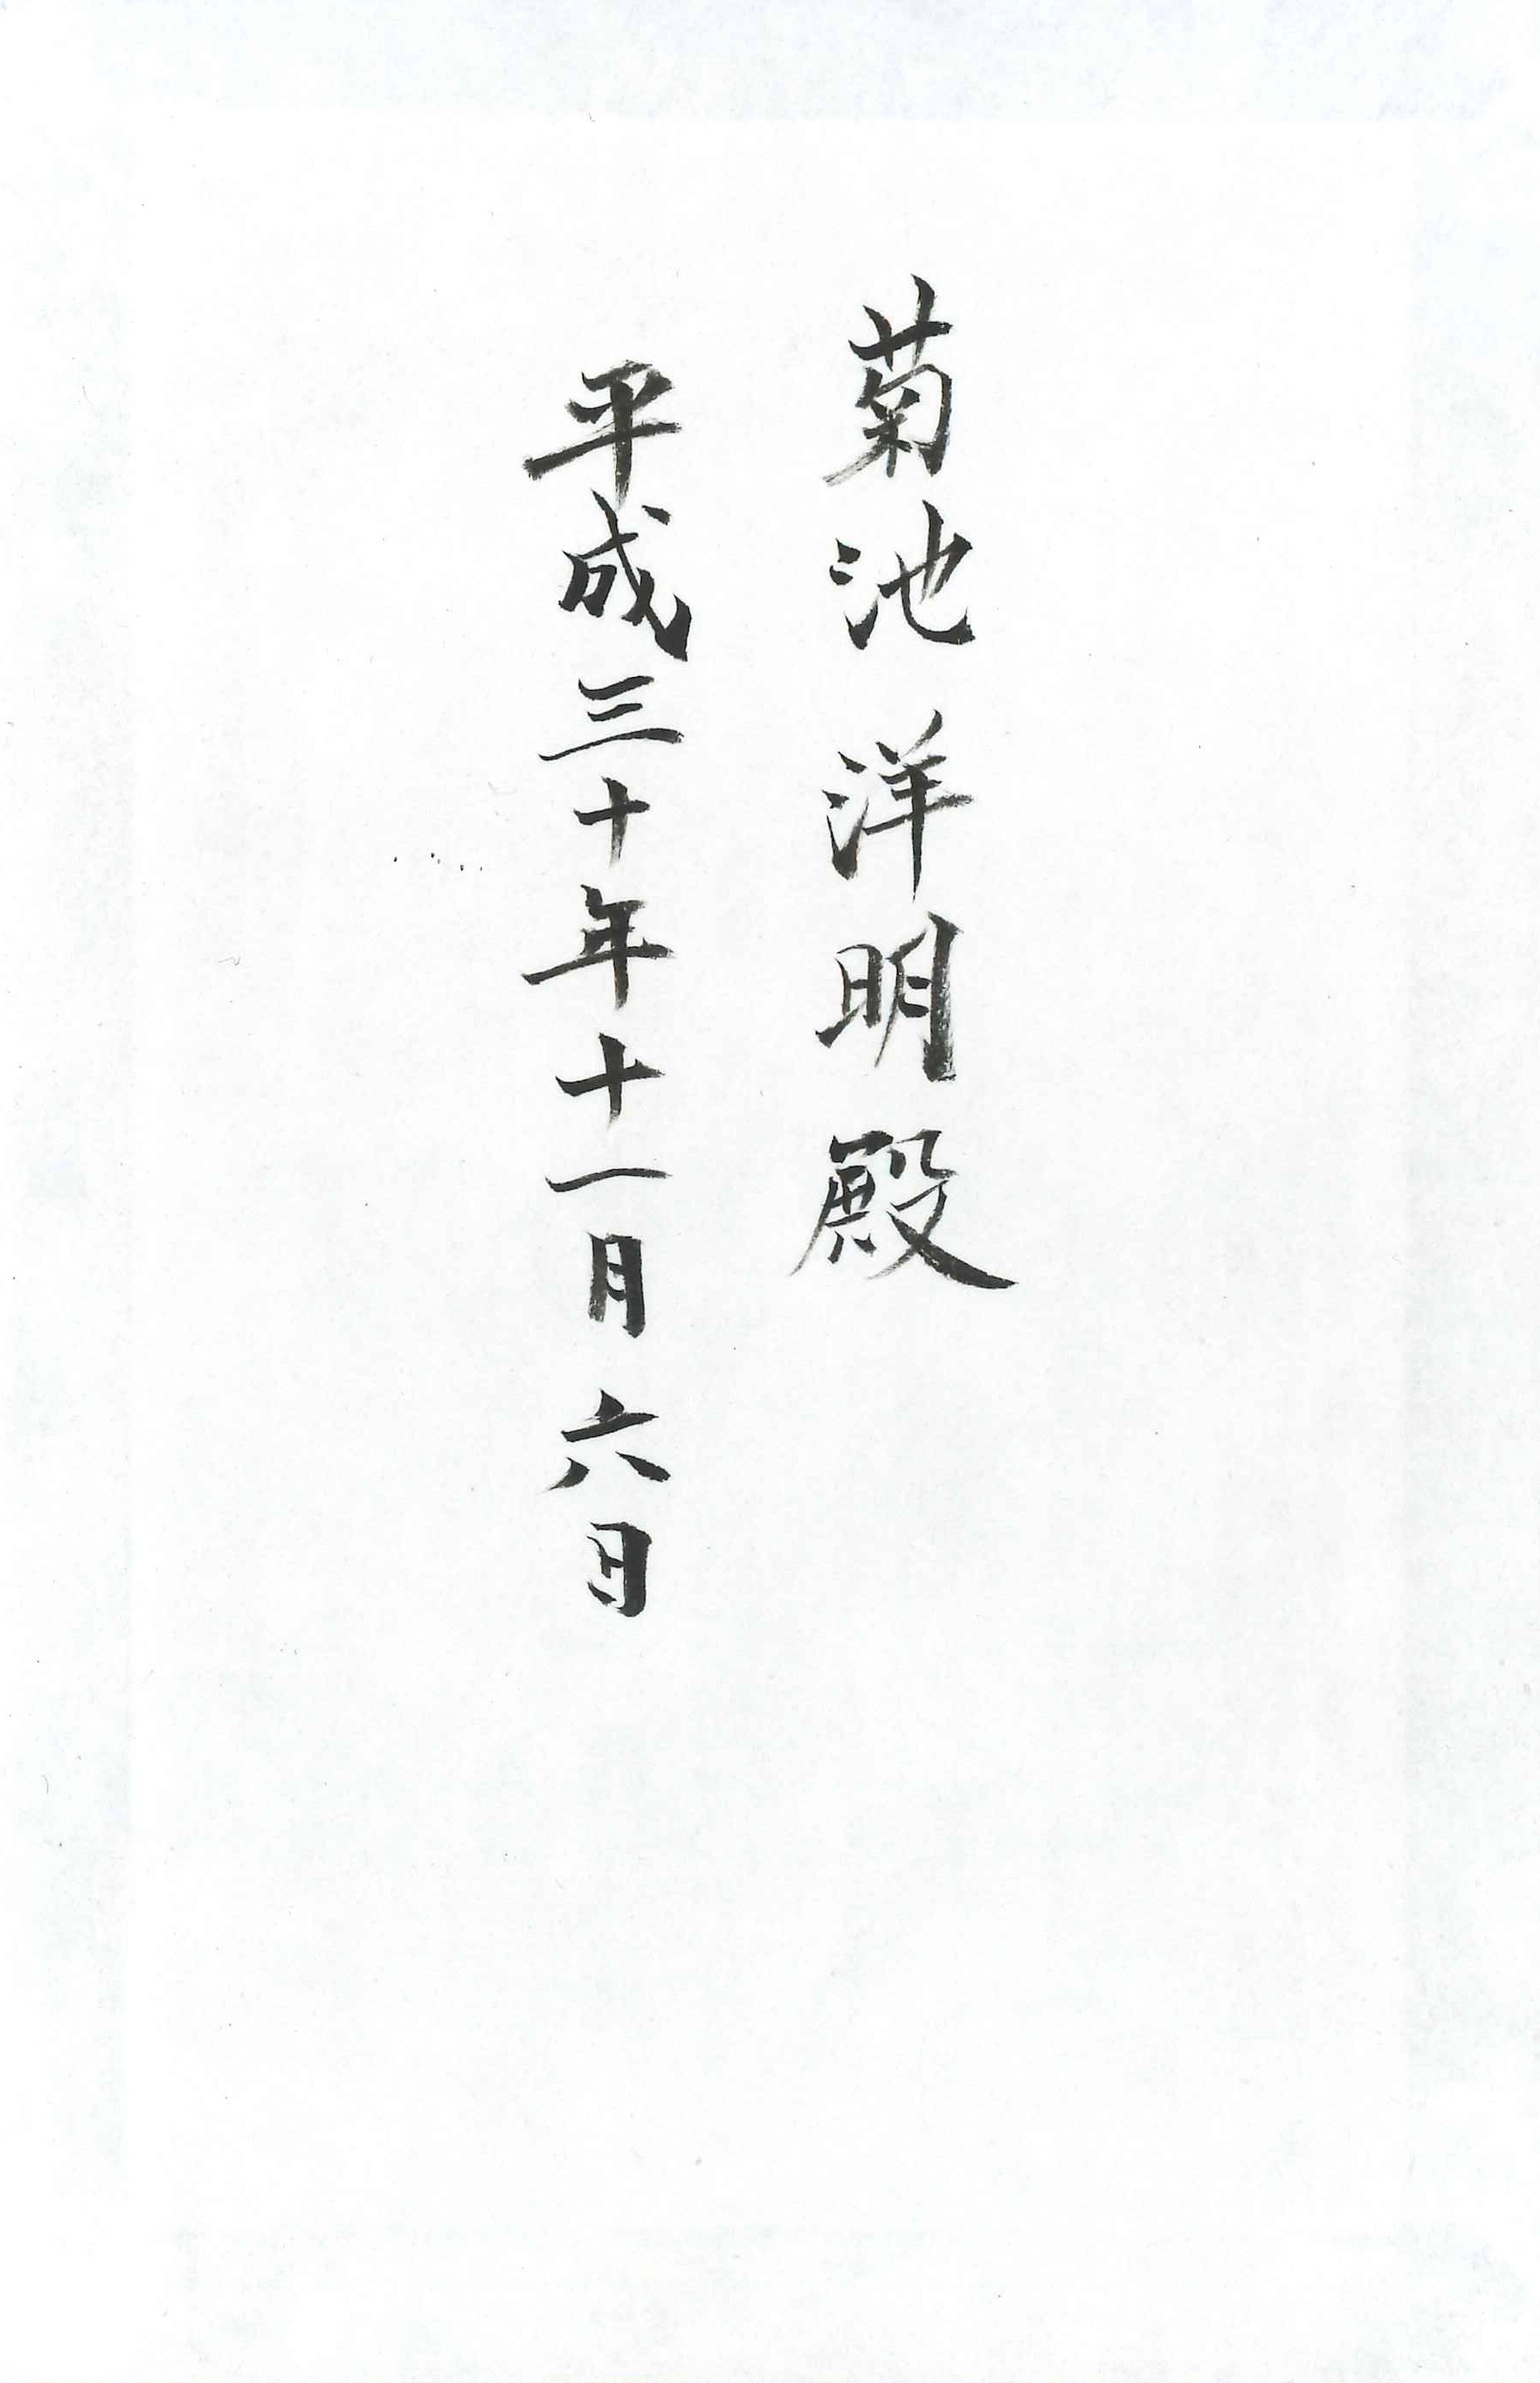 菊池洋明殿
平成三十年十一月六日